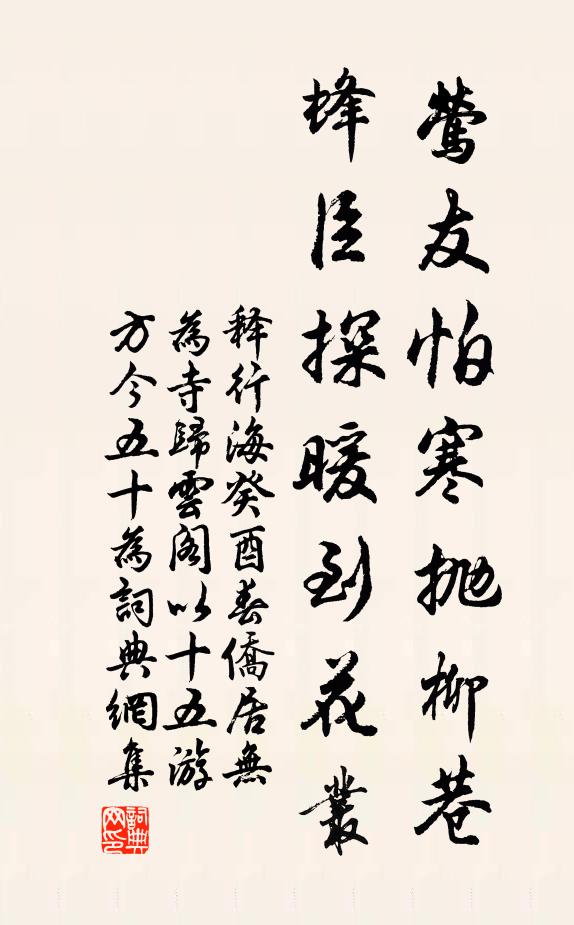 鶯友怕寒抛柳巷
蜂臣探暖到花叢
释行海癸酉春僑居無
為寺歸雲阁以十五游
方今五十為詞典網集
詞典網印